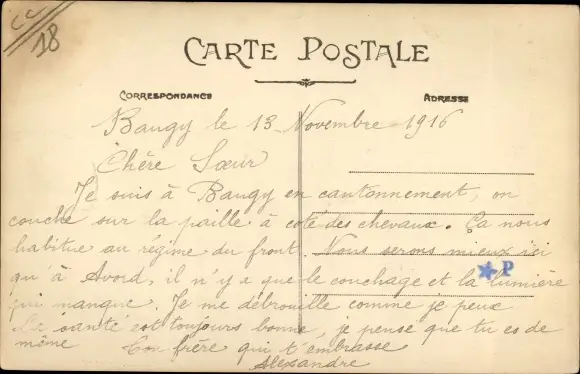 CC
18
CARTE POSTALE
CORRESPONDANCE
ADRESSE
Baugy le 13 Novembre 1916
Chère Sœur
Je suis à Baugy en cantonnement, on
couche sur la paille à coté des chevaux. Ça nous
habitue au régime du front. Nous serons mieux ici
qu'à Avord, il n'y a que le couchage et la lumière
qui manque. Je me débrouille comme je peux
La santé est toujours bonne, je pense que tu es de
même Ton frère qui t'embrasse
Alexandre
P